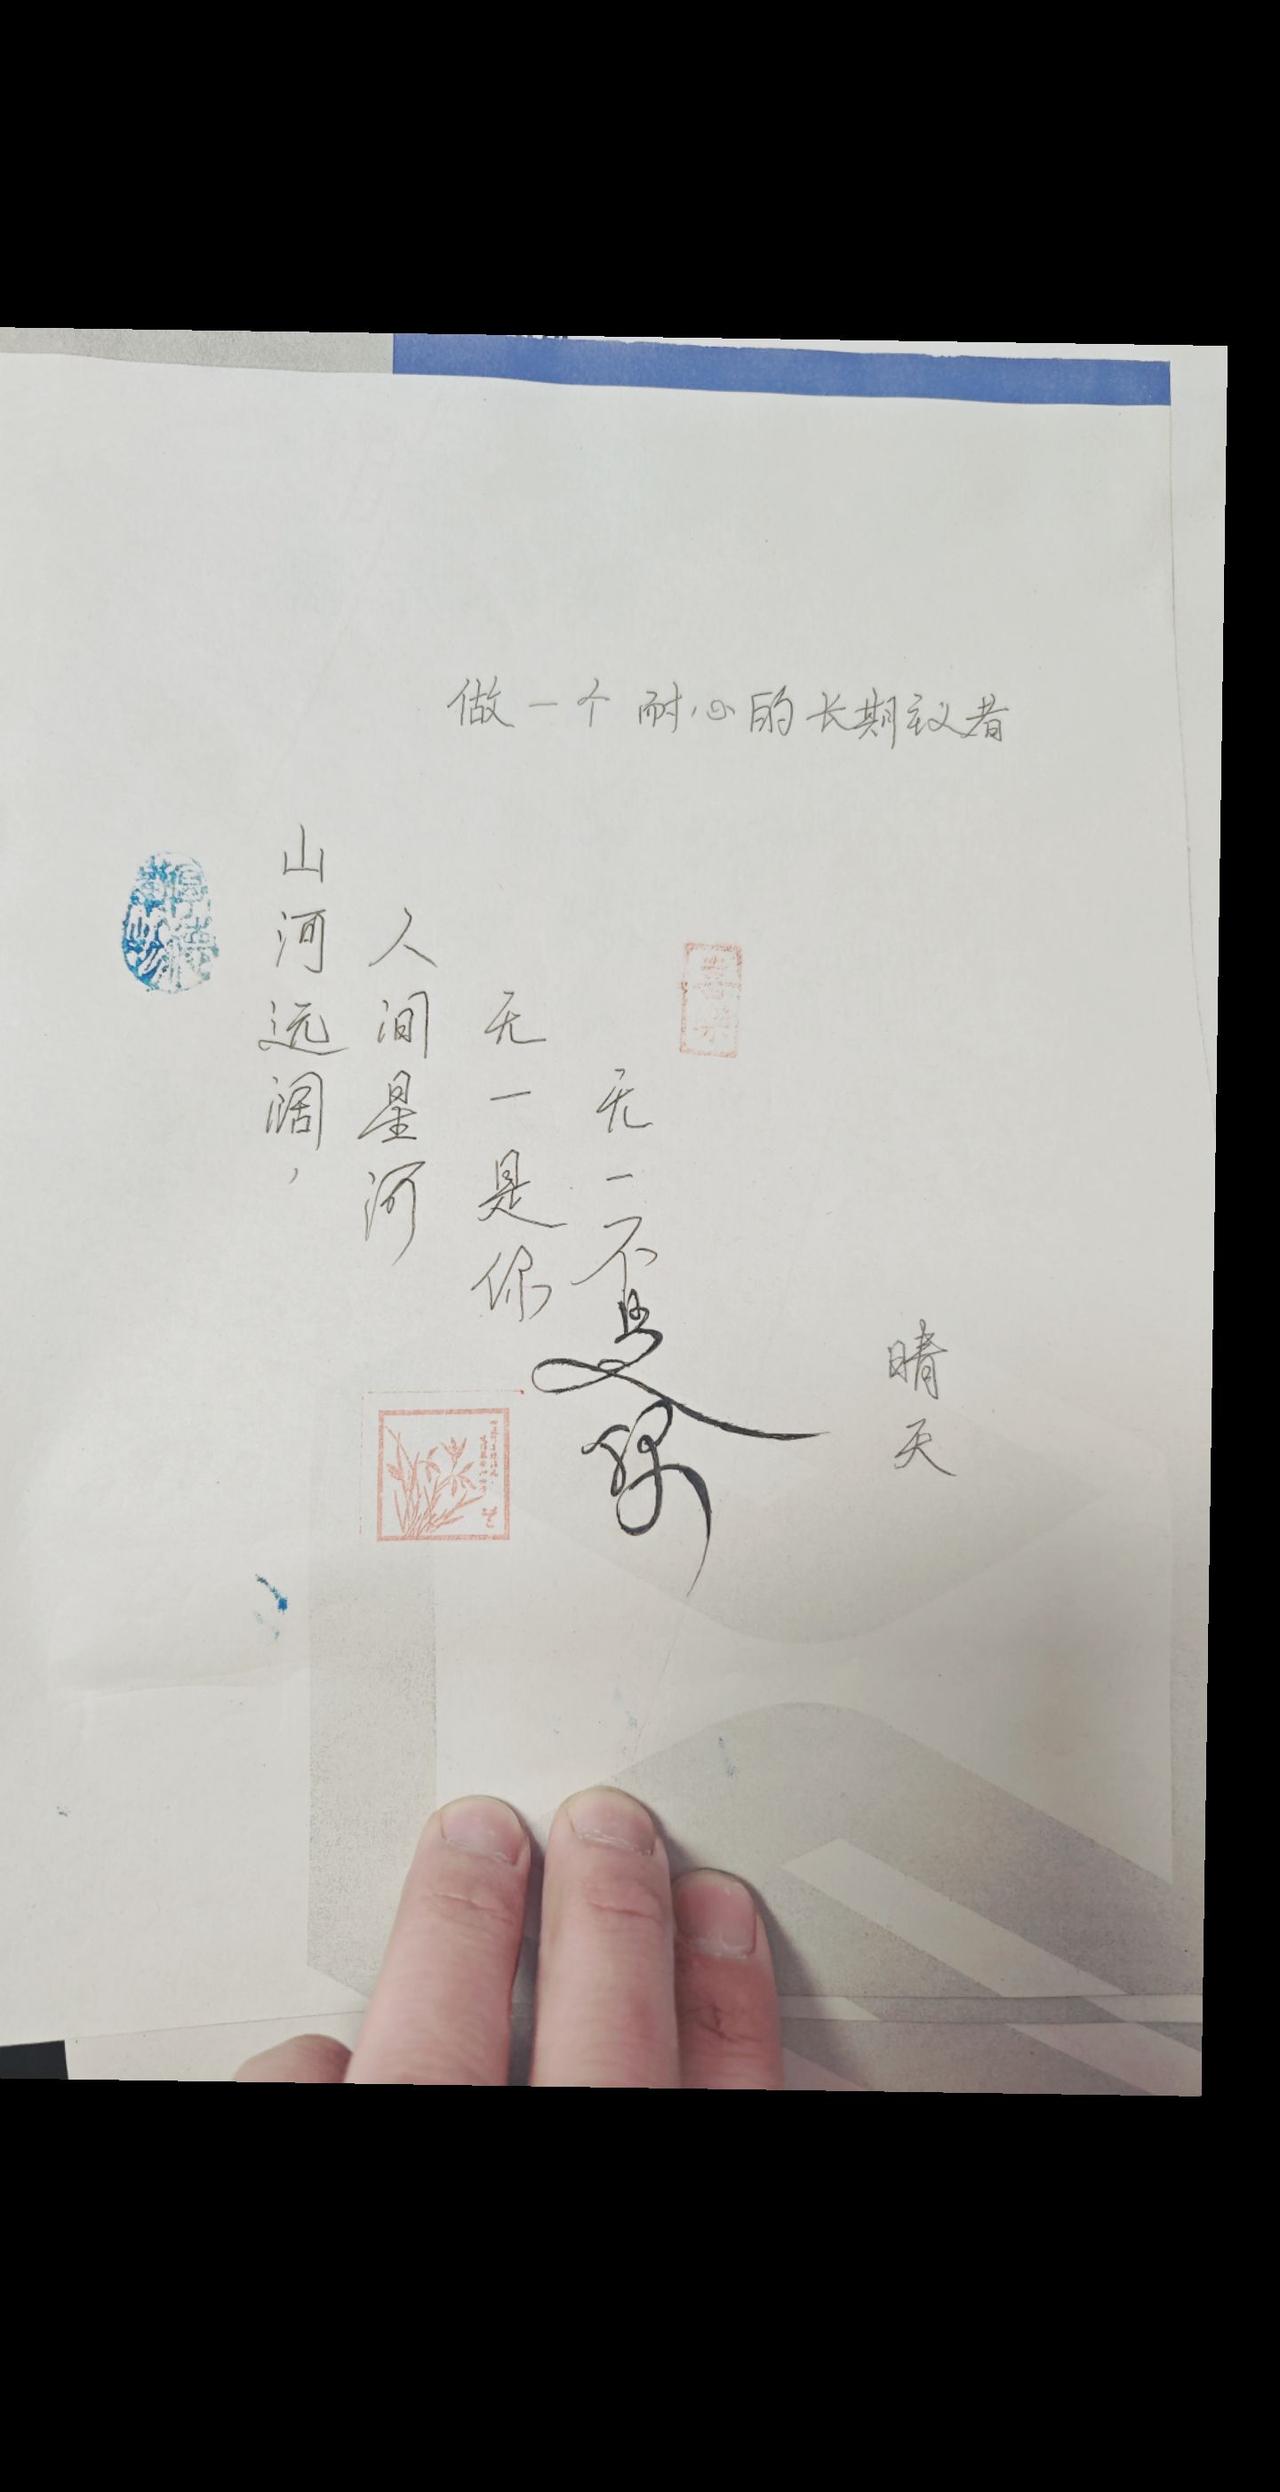 做一个耐心的长期主义者
山河远阔，
人间星河
无一是你
无一不是你
晴天